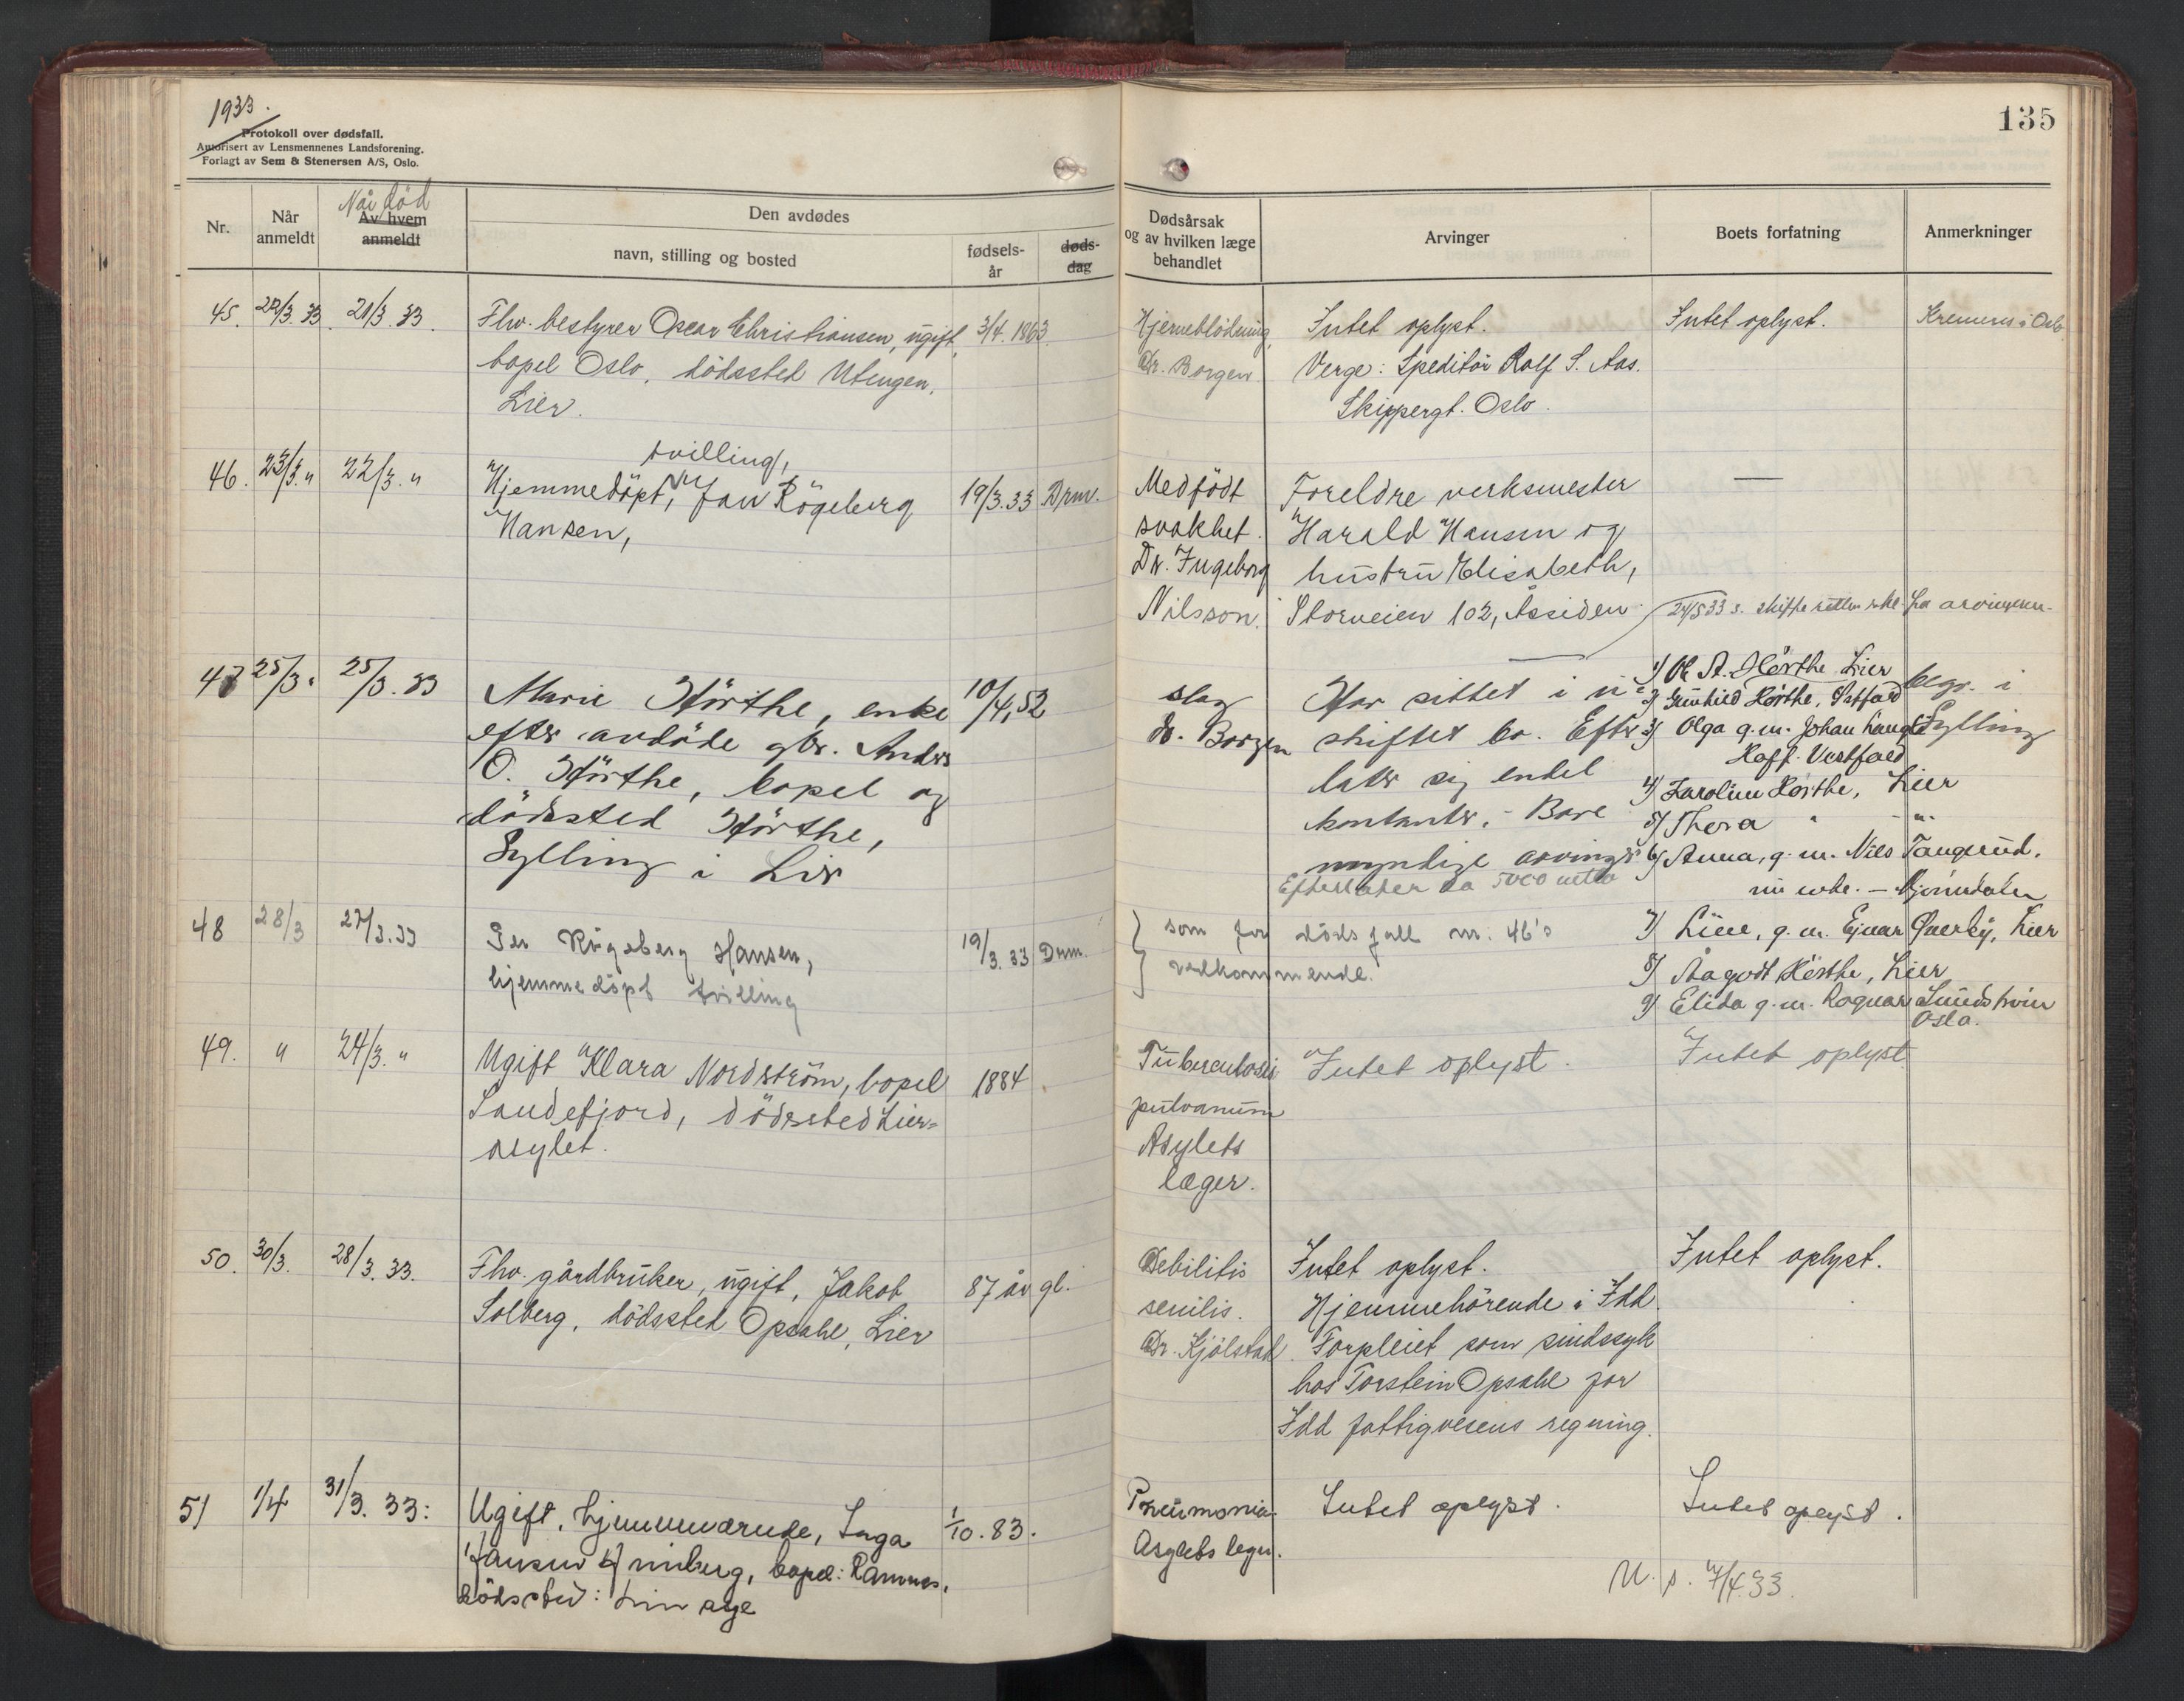 1933.
Protokoll over dødsfall.
Autorisert av Lensmennenes Landsforening.
Forlagt av Sem & Stenersen A/S, Oslo.
Nr.
Når anmeldt
Når død
Av hvem anmeldt
Den avdødes
navn, stilling og bosted
fødsels-
år
døds-
dag
45. 22/3. 33. 21/3. 33.
Fhv. bestyrer Oscar Christiansen, ugift, 3/4. 1863.
bopel Oslo, dödssted Utengen,
Lier.
46. 23/3. " 22/3. "
tvilling,
Hjemmedöpt, Jan Rögeberg 19/3. 33 Drm.
Hansen,
47 25/3. 25/3. 33
Marie Hörthe, enke 10/4, 52
efter avdöde gbr. Anders
O. Hörthe, bopel og
dödssted Hörthe,
Sylling i Lier
48 28/3 27/3. 33
Per Rögeberg Hansen, 19/3. 33 Drm.
hjemmedöpt tvilling
49. " 24/3. "
Ugift Klara Nordström, bopel 1884.
Sandefjord, dödssted Lier-
asylet.
50. 30/3. 28/3. 33.
Fhv. gårdbruker, ugift, Jakob 87 år gl.
Solberg, dödssted Opsahl, Lier
51 1/4 31/3. 33:
Ugift, hjemmeværende, Inga 1/10. 83.
bopel: Ramnes.
Dödssted:
135
Dødsårsak
og av hvilken læge
behandlet
Arvinger
Boets forfatning
Anmerkninger
Hjerneblödning, Intet oplyst. Intet oplyst. Kremeres i Oslo
Dr. Borgen. Verge: Speditör Rolf S. Aas.
Skippergt. Oslo.
Medfödt Foreldre verksmester —
svakhet. Harald Hansen og
Dr. Ingeborg hustru Elisabeth,
Nilsson. Storveien 102, Åssiden.
24/5 33 s. skifteretten fra arvingene.
slag Har sittet i u-
dr. Borgen skiftet bo. Efter-
later sig endel
kontanter. - Bare
myndige arvinger
Efterlater ca 5000 netto
1) Ol. A. Hörthe Lier
2) Gunhild Hörthe, Vestfold
3) Olga g.m. Johan
Hoff. Vestfold
4) Karoline Hörthe, Lier
5) Thora " - " -
6) Anna, g.m. Nils Tangerud.
nu enke. - Mjöndalen
7) Line, g.m. Ejnar Qverby, Lier
8) Aagodt Hörthe, Lier
9) Elida g.m. Ragnar Lundström
Oslo.
begr. i
Sylling
som for dödsfall nr. 46's
vedkommende.
Tuberculosis Intet oplyst. Intet oplyst
pulvanum
Asylets
læger.
Debilitis Intet oplyst. Intet oplyst.
senilis. Hjemmehörende i Idd.
Dr. Kjölstad Forpleiet som sindssyk
hos Torstein Opsahl for
Idd fattigvesens regning.
Pneumonia. Intet oplyst. Intet oplyst.
Asylets leger.
U. s. 7/4. 33.